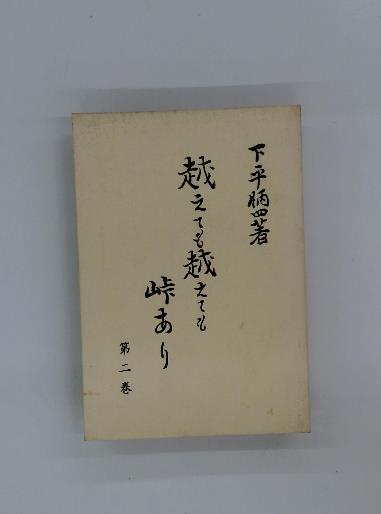 下平柄四著
越えても越えても
峠あり
第二巻